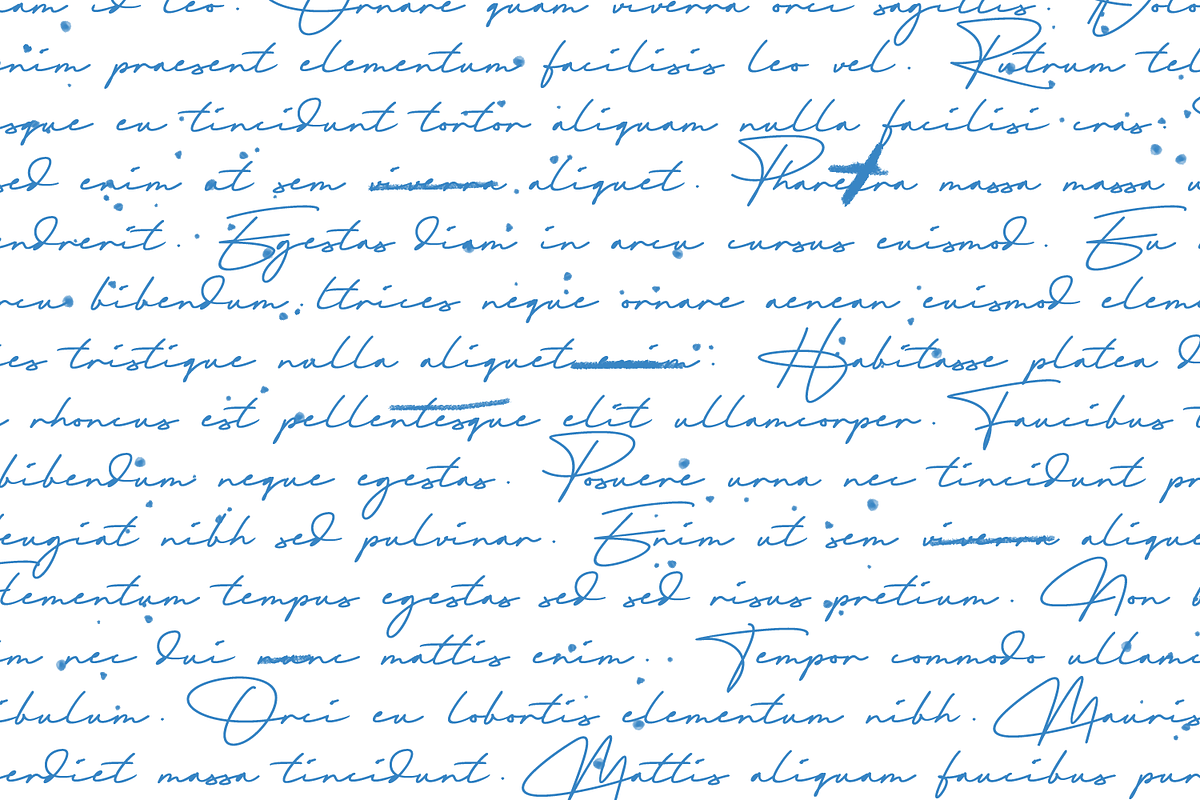 am id leo. Ornare quam viverra orci sagittis.
enim praesent elementum facilisis leo vel. Rutrum tel
sque eu tincidunt tortor aliquam nulla facilisi cras.
sed enim at sem viverra aliquet. Pharetra massa massa
endrerit. Egestas diam in arcu cursus euismod. Eu
rcu bibendum. ttrices neque ornare aenean euismod eleme
ies tristique nulla aliquet enim. Habitasse platea d
rhoncus est pellentesque elit ullamcorper. Faucibus
bibendum neque egestas. Posuere urna nec tincidunt pr
feugiat nibh sed pulvinar. Enim ut sem viverra alique
tementum tempus egestas sed sed risus pretium. Non b
m nec dui nunc mattis enim.. Tempor commodo ullamc
ibulum. Orci eu lobortis elementum nibh. Mauris
erdiet massa tincidunt. Mattis aliquam faucibus pur